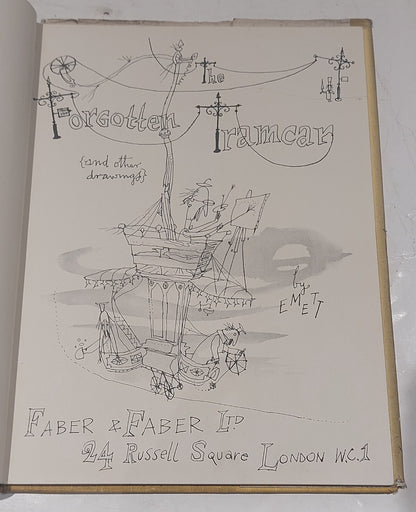 The
Forgotten Tramcar
{and other
drawings}
by
EMETT
FABER & FABER LTD
24 Russell Square London W.C.1